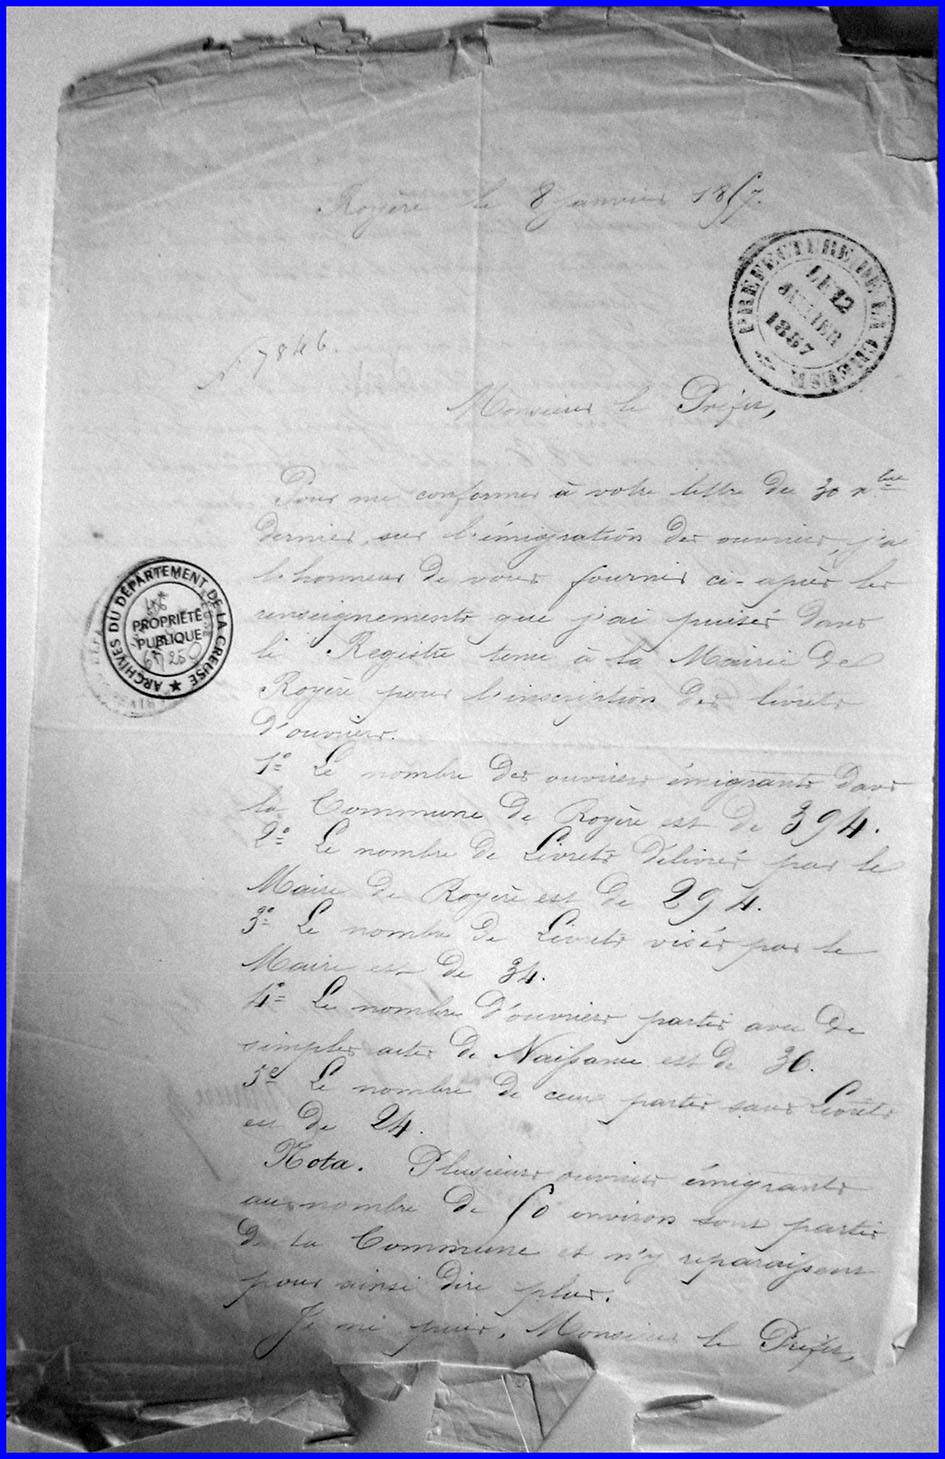 Royère le 8 Janvier 1857.
PREFECTURE DE LA CREUSE
LE 12
JANVIER
1857
N 7846.
Monsieur le Préfet,
Pour me conformer à votre lettre du 30 xbre
dernier, sur l'émigration des ouvriers, j'ai
l'honneur de vous fournir ci-après les
renseignements que j'ai puisés dans
le Registre tenu à la Mairie de
Royère pour l'inscription des livrets
d'ouvriers.
ARCHIVES DU DÉPARTEMENT DE LA CREUSE
PROPRIÉTÉ
PUBLIQUE
1° Le nombre des ouvriers émigrants dans
la Commune de Royère est de 394.
2° Le nombre de Livrets délivrés par le
Maire de Royère est de 294.
3° Le nombre de Livrets visés par le
Maire est de 34.
4° Le nombre d'ouvriers partis avec de
simples actes de Naissance est de 36.
5° Le nombre de ceux partis sans Livrets
est de 24.
Nota. Plusieurs ouvriers émigrants
au nombre de 50 environ sont partis
de la Commune et n'y reparaissent
pour ainsi dire plus.
Je suis, Monsieur le Préfet,